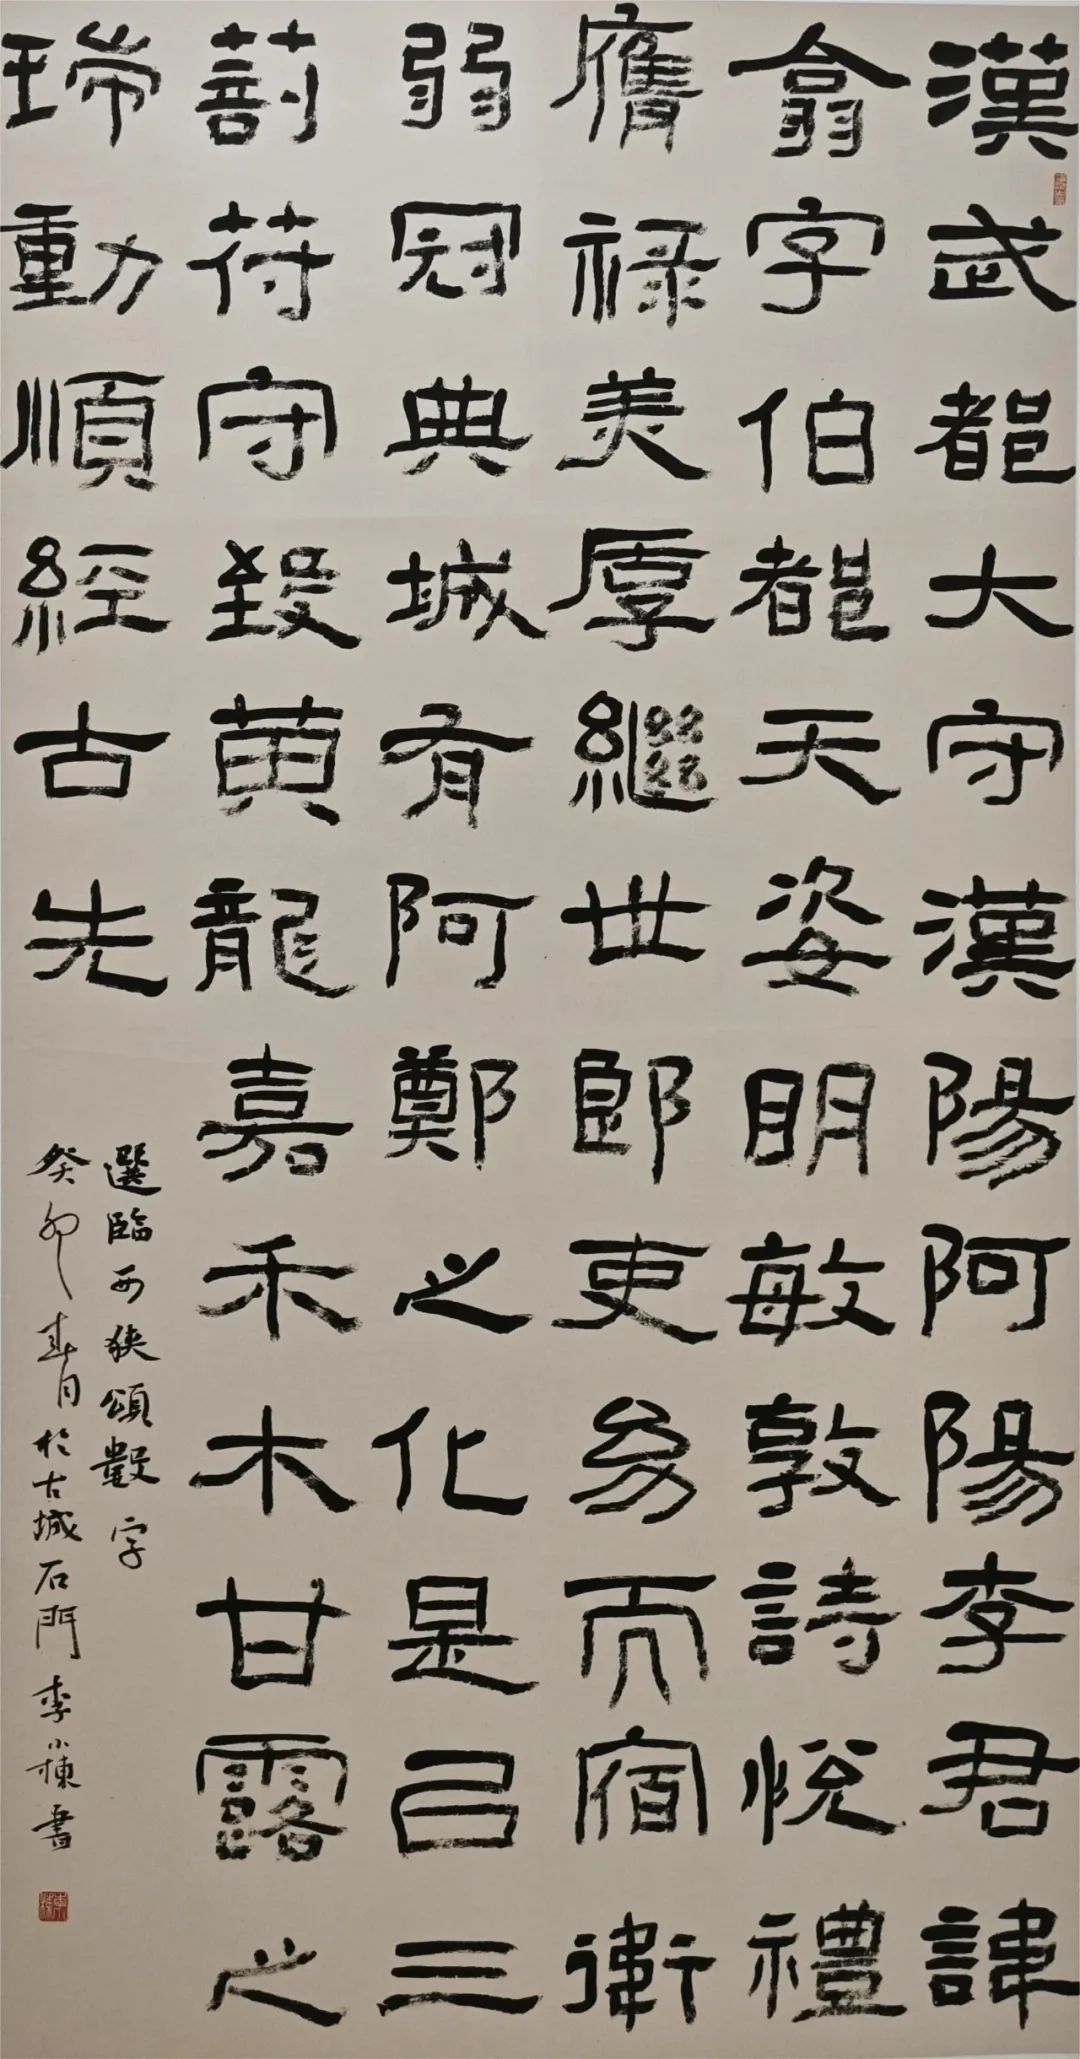 漢武都大守漢陽阿陽李君諱
翕字伯都天姿明敏敦詩悅禮
膺祿美厚繼世郎吏幼而宿衛
弱冠典城有阿鄭之化是以三
剖苻守致黃龍嘉禾木甘露之
瑞動順經古先
選臨西狹頌數字
癸卯春月於古城石門李小棟書